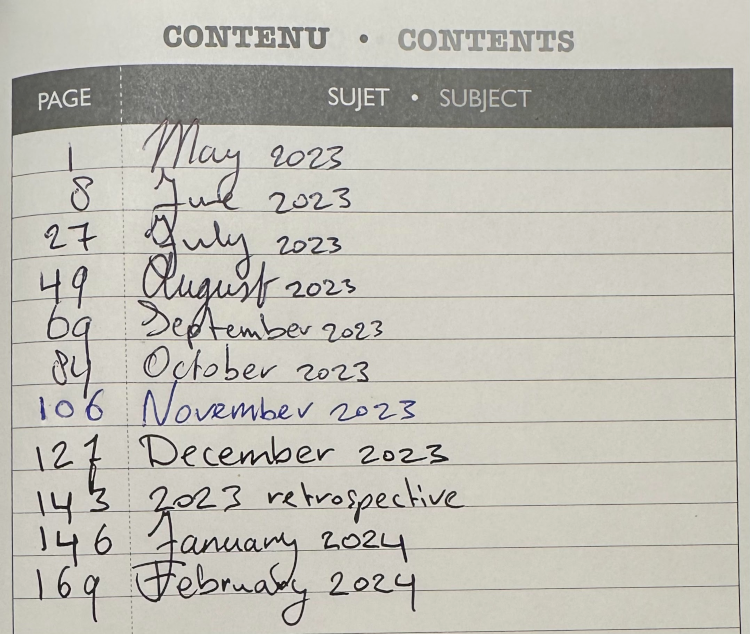 CONTENU • CONTENTS
PAGE SUJET • SUBJECT
1 May 2023
8 June 2023
27 July 2023
49 August 2023
69 September 2023
84 October 2023
106 November 2023
127 December 2023
143 2023 retrospective
146 January 2024
169 February 2024